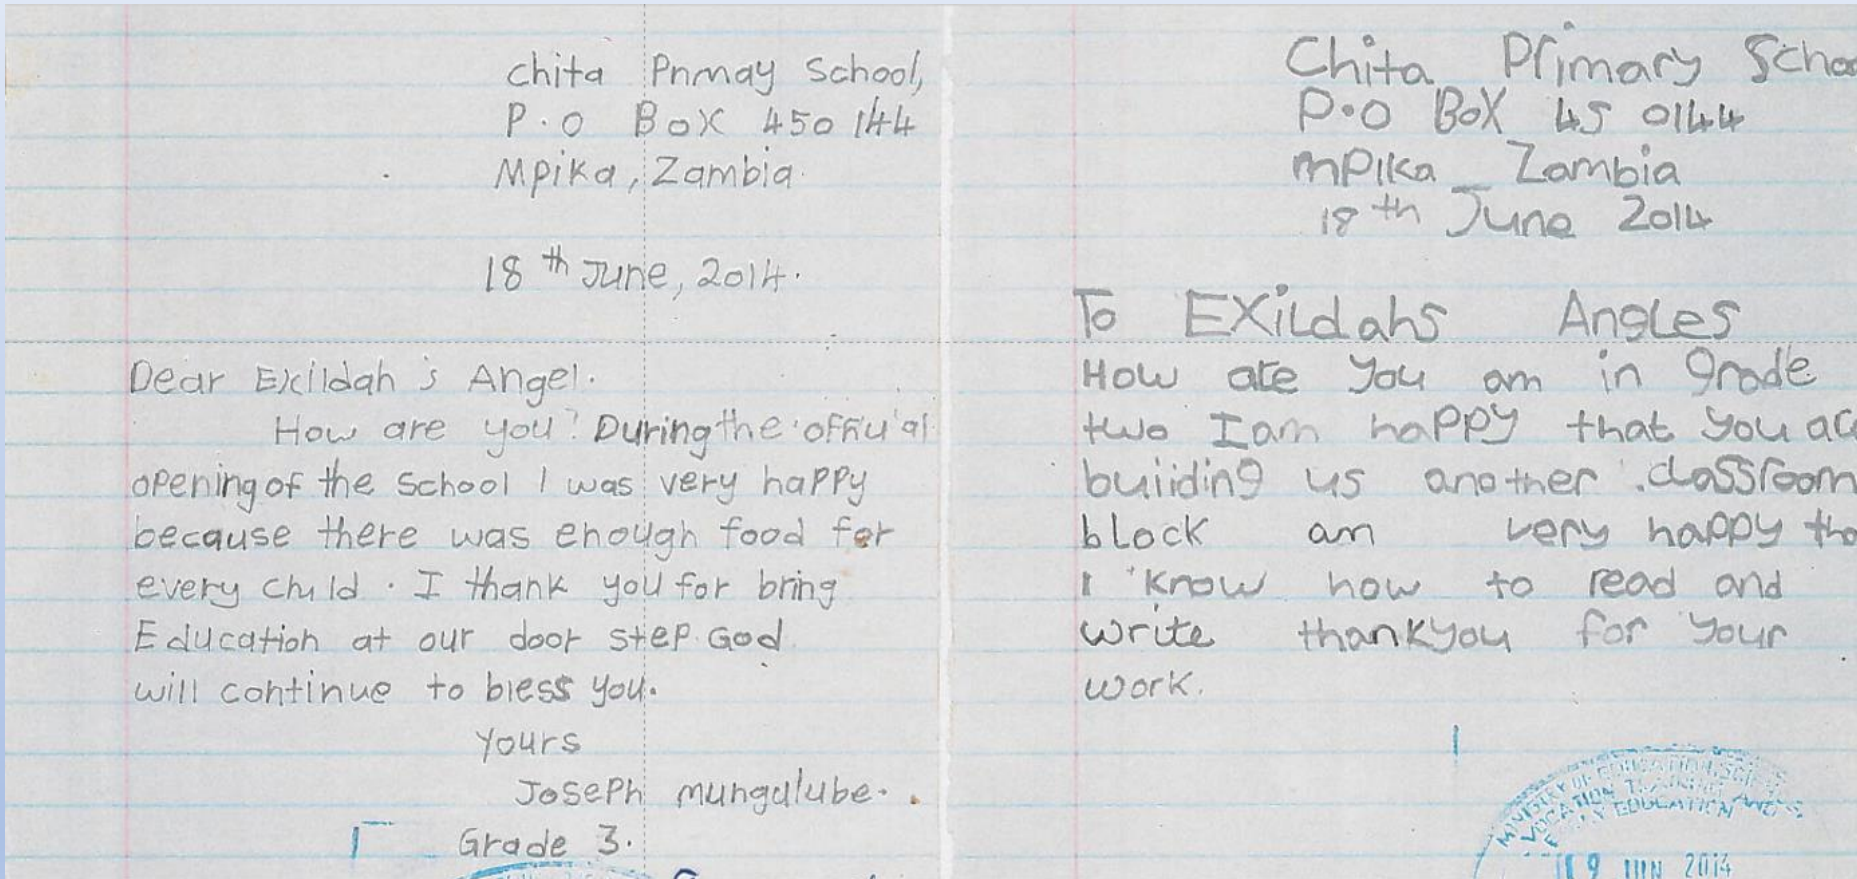 Chita Primay School,
P.O Box 450144
Mpika, Zambia.
18th June, 2014.
Dear Exildah's Angel.
How are you? During the official
opening of the School I was very happy
because there was enough food for
every child. I thank you for bring
Education at our door step. God
will continue to bless you.
Yours
Joseph mungulube.
Grade 3.
Chita Primary Schoo
P.O BOX 45 0144
mpika Zambia
18th June 2014
To EXildahs Angles
How are you am in grade
two I am happy that you are
buiiding us another classroom
block am very happy tha
I know how to read and
write thankyou for your
work.
MINISTRY OF EDUCATION, SCIENCE
VOCATION TRAINING AND
EARLY EDUCATION
19 JUN 2014